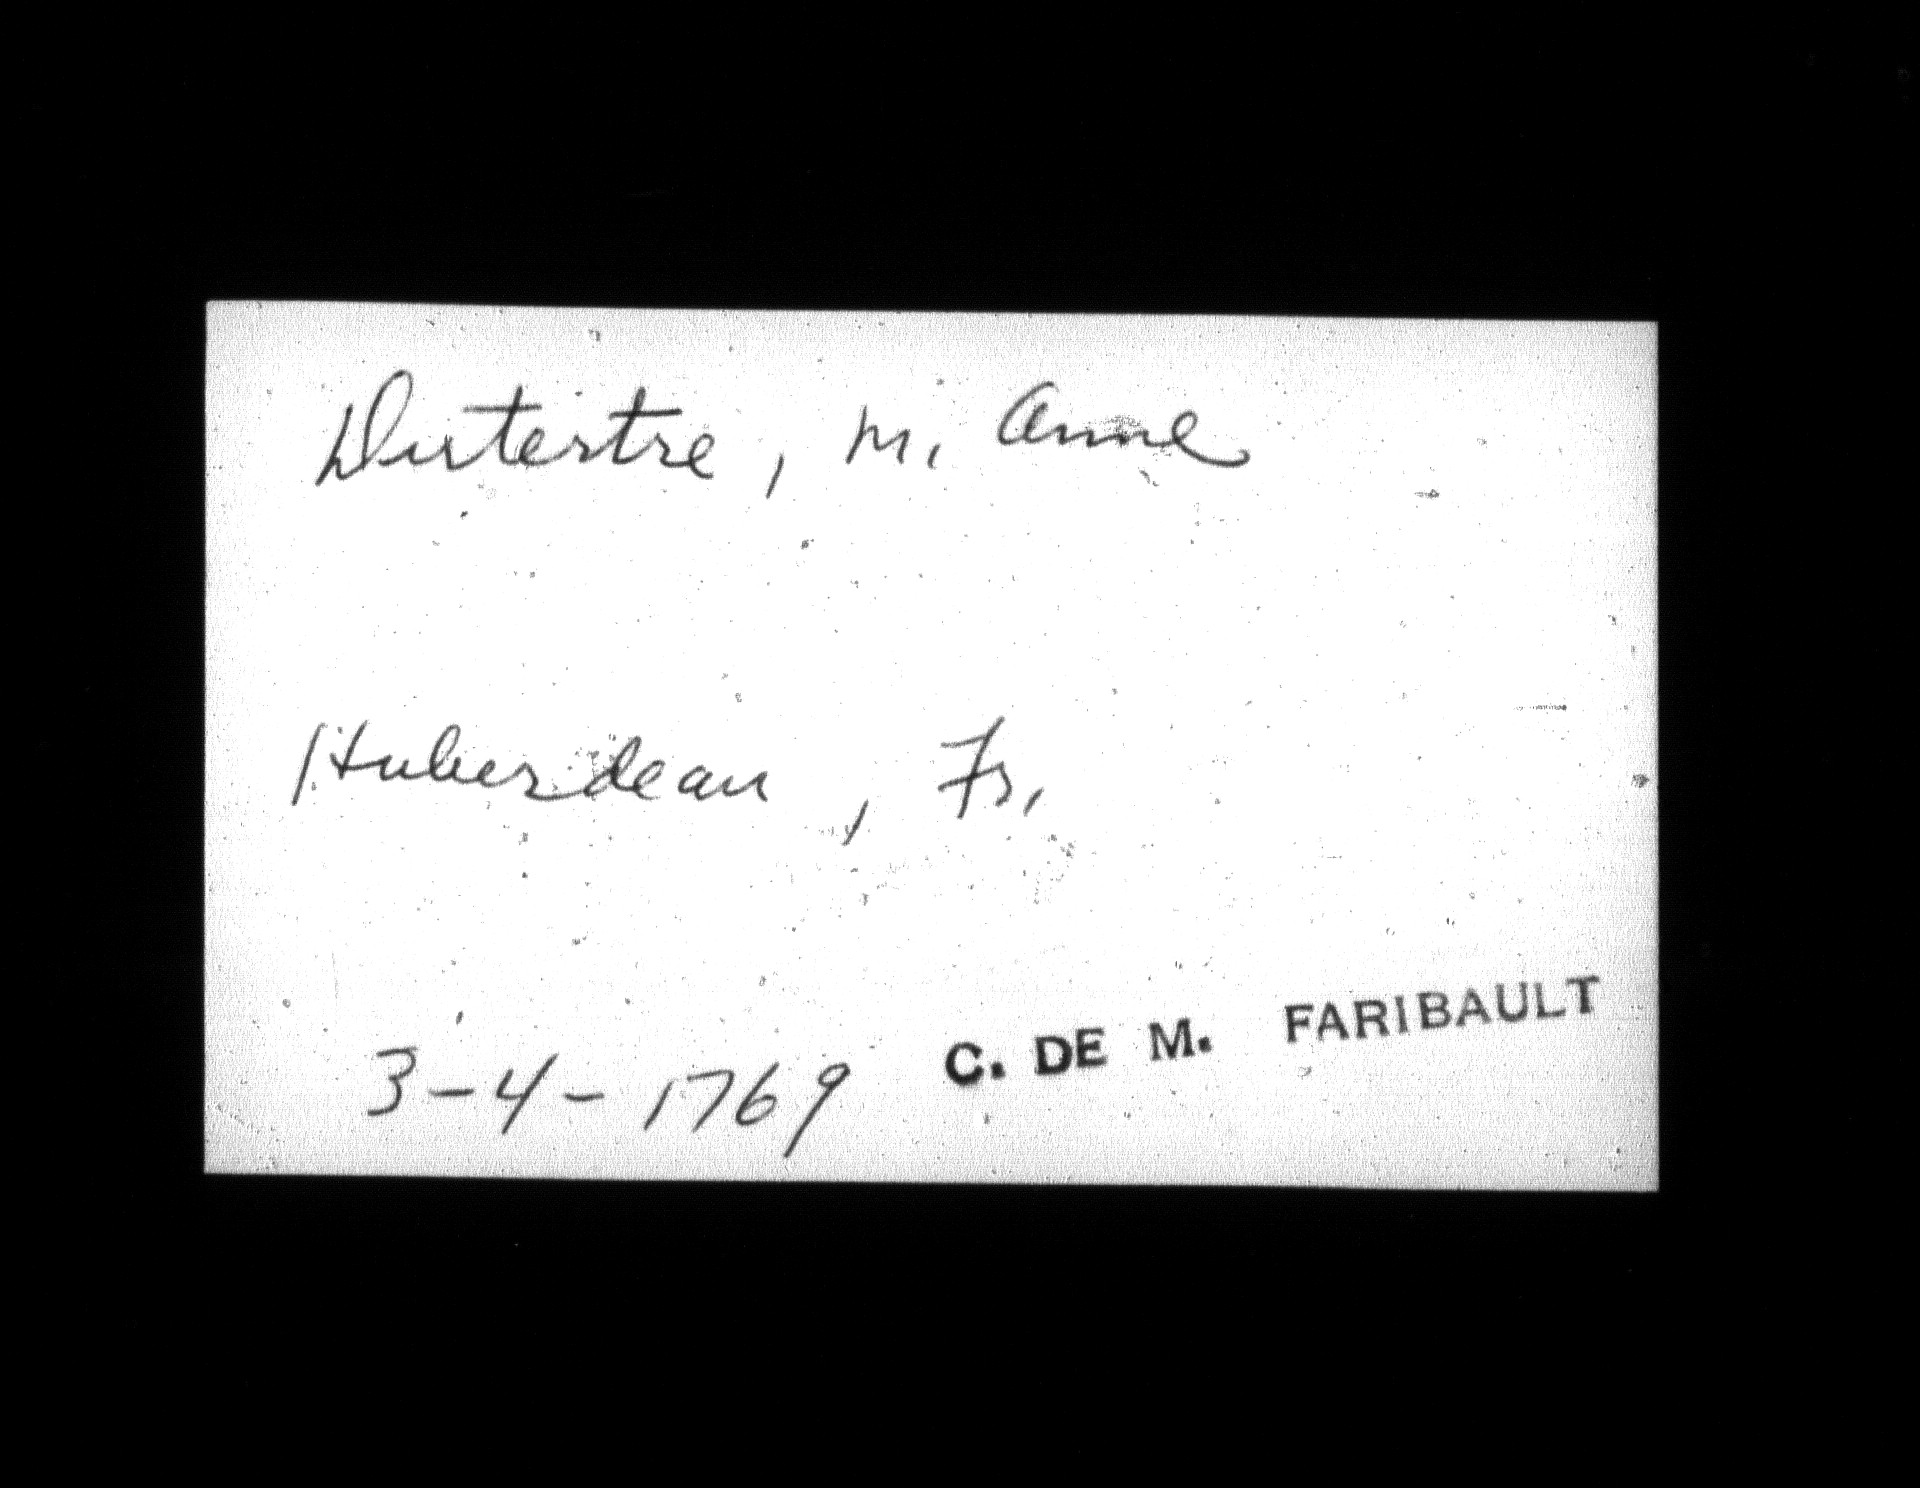 Dutertre, M. Anne
Huberdeau, Fr.
3-4-1769 C. DE M. FARIBAULT